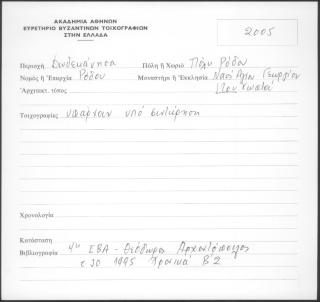 ΑΚΑΔΗΜΙΑ ΑΘΗΝΩΝ
ΕΥΡΕΤΗΡΙΟ ΒΥΖΑΝΤΙΝΩΝ ΤΟΙΧΟΓΡΑΦΙΩΝ
ΣΤΗΝ ΕΛΛΑΔΑ
2005
Περιοχή Δωδεκάνησα Πόλη ή Χωριό Πόλη Ρόδου
Νομός ή Ἐπαρχία Ρόδου Μοναστήρι ή Ἐκκλησία Ναός Αγίου Γεωργίου
Ἀρχιτεκτ. τύπος του Χωστού
Τοιχογραφίες υπάρχουν υπό συντήρηση
Χρονολογία
Κατάσταση
Βιβλιογραφία 4η ΕΒΑ - Θεόδωρος Αρχοντόπουλος
1995 Β2